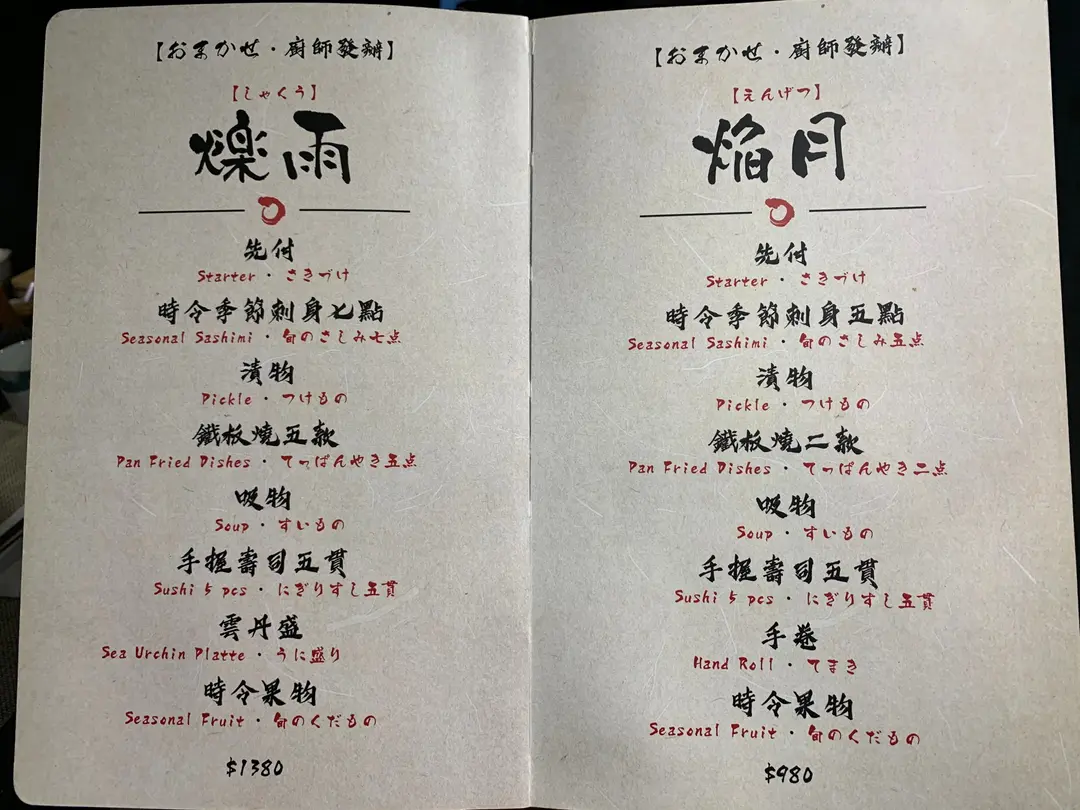 【おまかせ・廚師發辦】
【しゃくう】
爍雨
先付
Starter・さきづけ
時令季節刺身七點
Seasonal Sashimi・旬のさしみ七点
漬物
Pickle・つけもの
鐵板燒五款
Pan Fried Dishes・てっぱんやき五点
吸物
Soup・すいもの
手握壽司五貫
Sushi 5 pcs・にぎりすし五貫
雲丹盛
Sea Urchin Platte・うに盛り
時令果物
Seasonal Fruit・旬のくだもの
$1380
【おまかせ・廚師發辦】
【えんげつ】
焔月
先付
Starter・さきづけ
時令季節刺身五點
Seasonal Sashimi・旬のさしみ五点
漬物
Pickle・つけもの
鐵板燒二款
Pan Fried Dishes・てっぱんやき二点
吸物
Soup・すいもの
手握壽司五貫
Sushi 5 pcs・にぎりすし五貫
手巻
Hand Roll・てまき
時令果物
Seasonal Fruit・旬のくだもの
$980